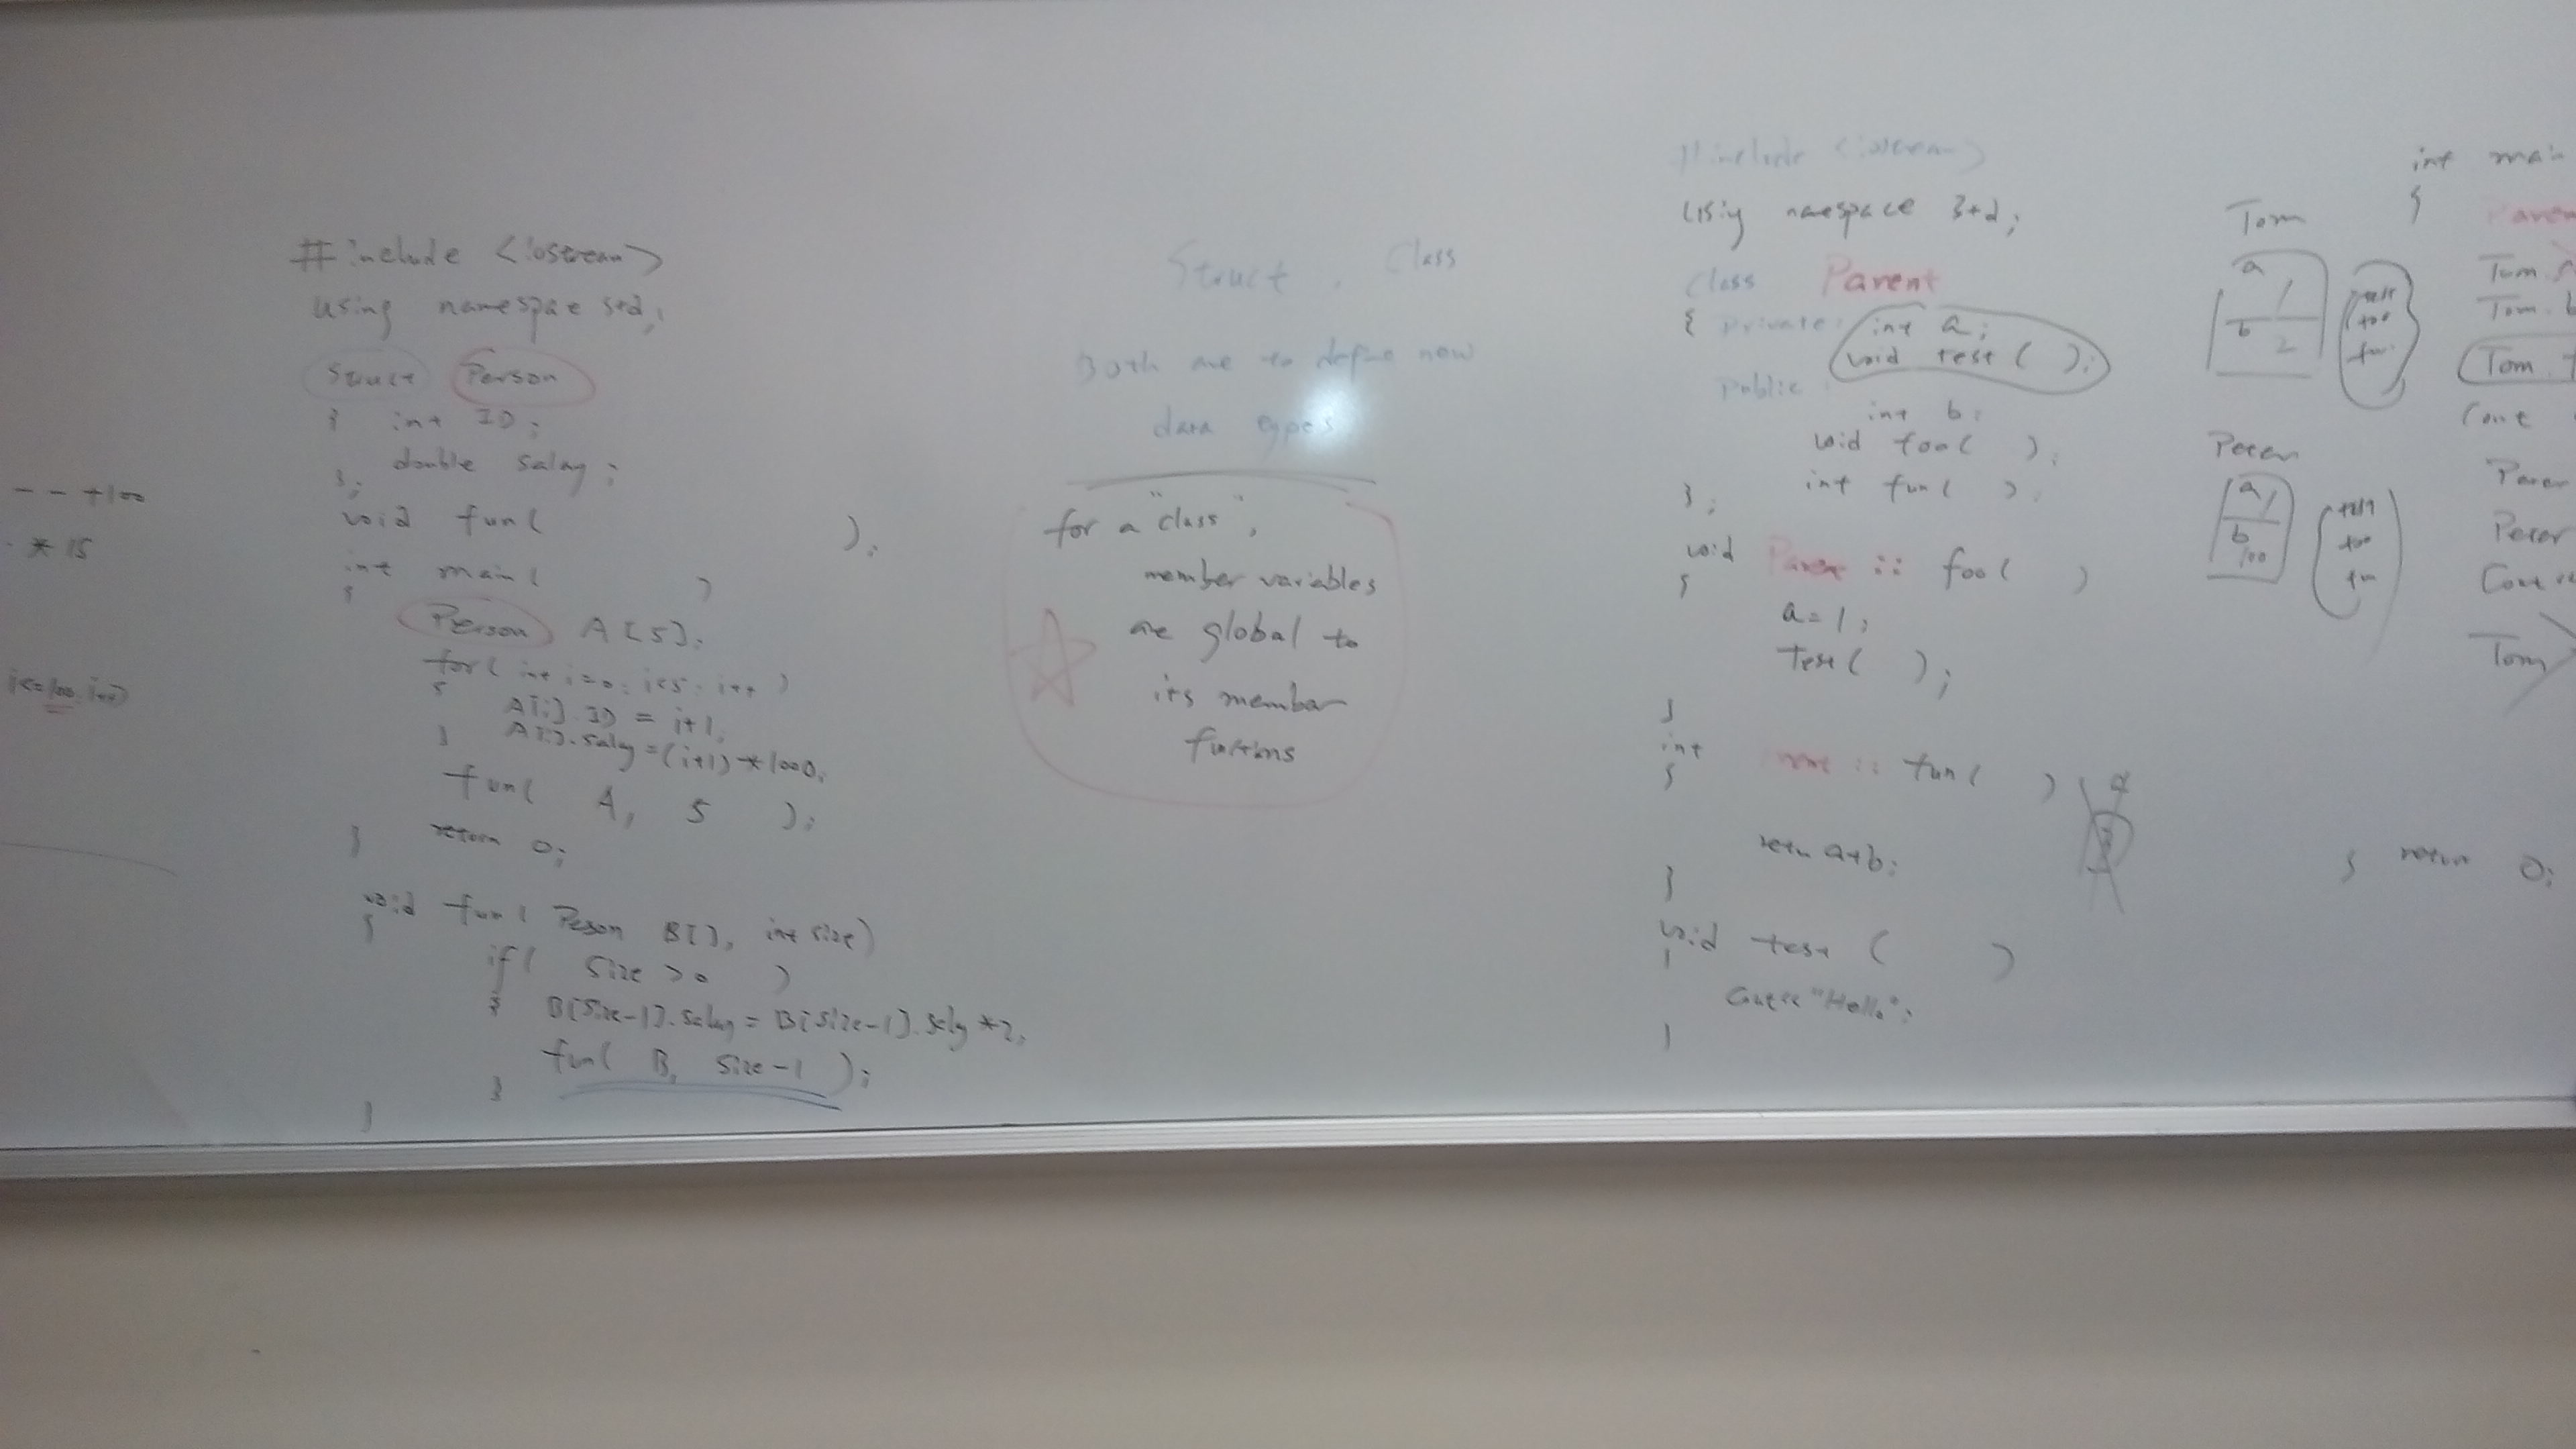 - - +100
* 15
i<=100. i++)
#include <iostream>
using namespace std;
struct Person
{ int ID;
double salay;
};
void fun( );
int main( )
{
Person A[5];
for( int i=0; i<5; i++ )
{
A[i].ID = i+1,
} A[i].salay=(i+1)*1000;
fun( A, 5 );
return 0;
}
void fun( Person B[], int size)
{
if( size >0 )
{ B[size-1].salay = B[size-1].saly *2,
fun( B, size-1 );
}
}
Struct , Class
Both are to define new
data types
for a "class",
member variables
are global to
its member
funtins
#include <iostream>
Using namespace std;
Class Parent
{ Private: int a;
void test( );
Public:
int b;
void foo( );
int fun( );
};
void Parent :: foo( )
{
a=1;
Test( );
}
int :: fun( )
{
retn a+b;
}
void test ( )
{
Cout<<"Hello";
}
Tom
a 1
b 2
test
foo
fun
Peter
a 1
b 100
test
foo
fun
int main
{
Paren
Tom.
Tom.b
Tom.
Cout
Peter
Cout
Tom
} return 0;